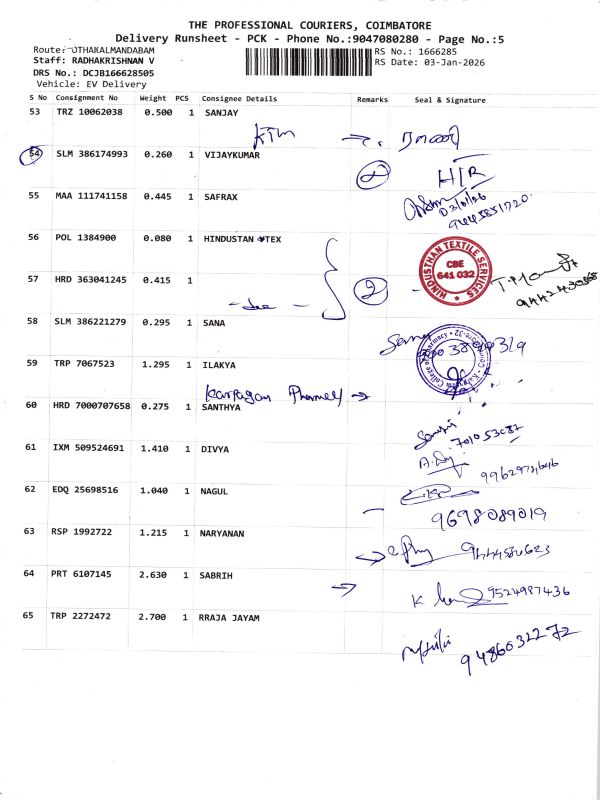 THE PROFESSIONAL COURIERS, COIMBATORE
Delivery Runsheet - PCK - Phone No.:9047080280 - Page No.:5
Route: OTHAKALMANDABAM
RS No.: 1666285
Staff: RADHAKRISHNAN V
RS Date: 03-Jan-2026
DRS No.: DCJB166628505
Vehicle: EV Delivery
S No Consignment No Weight PCS Consignee Details Remarks Seal & Signature
53 TRZ 10062038 0.500 1 SANJAY
KTM
54 SLM 386174993 0.260 1 VIJAYKUMAR
2 H/R
55 MAA 111741158 0.445 1 SAFRAX
03/01/26
56 POL 1384900 0.080 1 HINDUSTAN TEX
HINDUSTHAN TEXTILE SERVICES
CBE
641 032
57 HRD 363041245 1 0.415 1
2
58 SLM 386221279 0.295 1 SANA
59 TRP 7067523 1.295 1 ILAKYA
Karpagam
60 HRD 7000707658 0.275 1 SANTHYA
61 IXM 509524691 1.410 1 DIVYA
62 EDQ 25698516 1.040 1 NAGUL
9698089019
63 RSP 1992722 1.215 1 NARYANAN
64 PRT 6107145 2.630 1 SABRIH
9524987436
65 TRP 2272472 2.700 1 RRAJA JAYAM